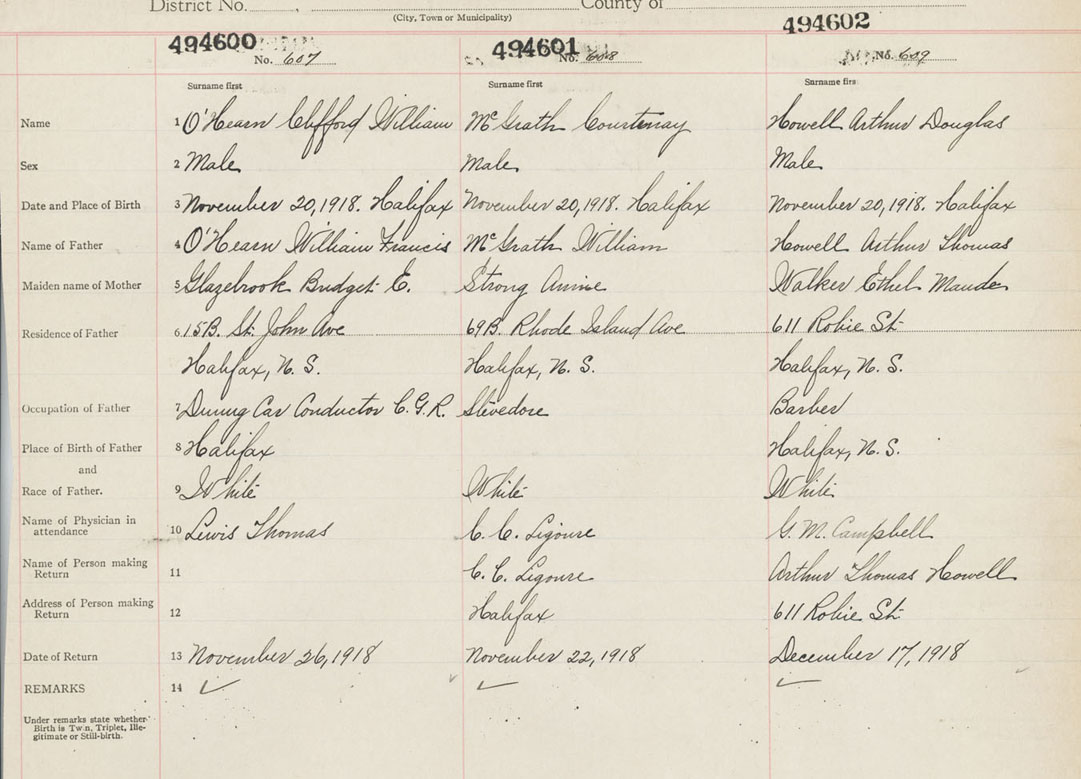 District No. , County of
(City, Town or Municipality)
494600 494601 494602
No. 607 No. 608 No. 609
Surname first Surname first Surname firs
Name 1 O'Hearn Clifford William McGrath Courtenay Howell Arthur Douglas
Sex 2 Male Male Male
Date and Place of Birth 3 November 20, 1918. Halifax November 20, 1918. Halifax November 20, 1918. Halifax
Name of Father 4 O'Hearn William Francis McGrath William Howell Arthur Thomas
Maiden name of Mother 5 Glazebrook Bridget E. Strong Annie Walker Ethel Maude
Residence of Father 6 15B. St. John Ave 69B. Rhode Island Ave 611 Robie St
Halifax, N. S. Halifax, N. S. Halifax, N. S.
Occupation of Father 7 Dining Car Conductor C.G.R. Stevedore Barber
Place of Birth of Father 8 Halifax Halifax, N. S.
and
Race of Father. 9 White White White
Name of Physician in 10 Lewis Thomas C. C. Ligoure G. M. Campbell
attendance
Name of Person making 11 C. C. Ligoure Arthur Thomas Howell
Return
Address of Person making 12 Halifax 611 Robie St
Return
Date of Return 13 November 26, 1918 November 22, 1918 December 17, 1918
REMARKS 14 ✓ ✓ ✓
Under remarks state whether
Birth is Twin, Triplet, Ille-
gitimate or Still-birth.